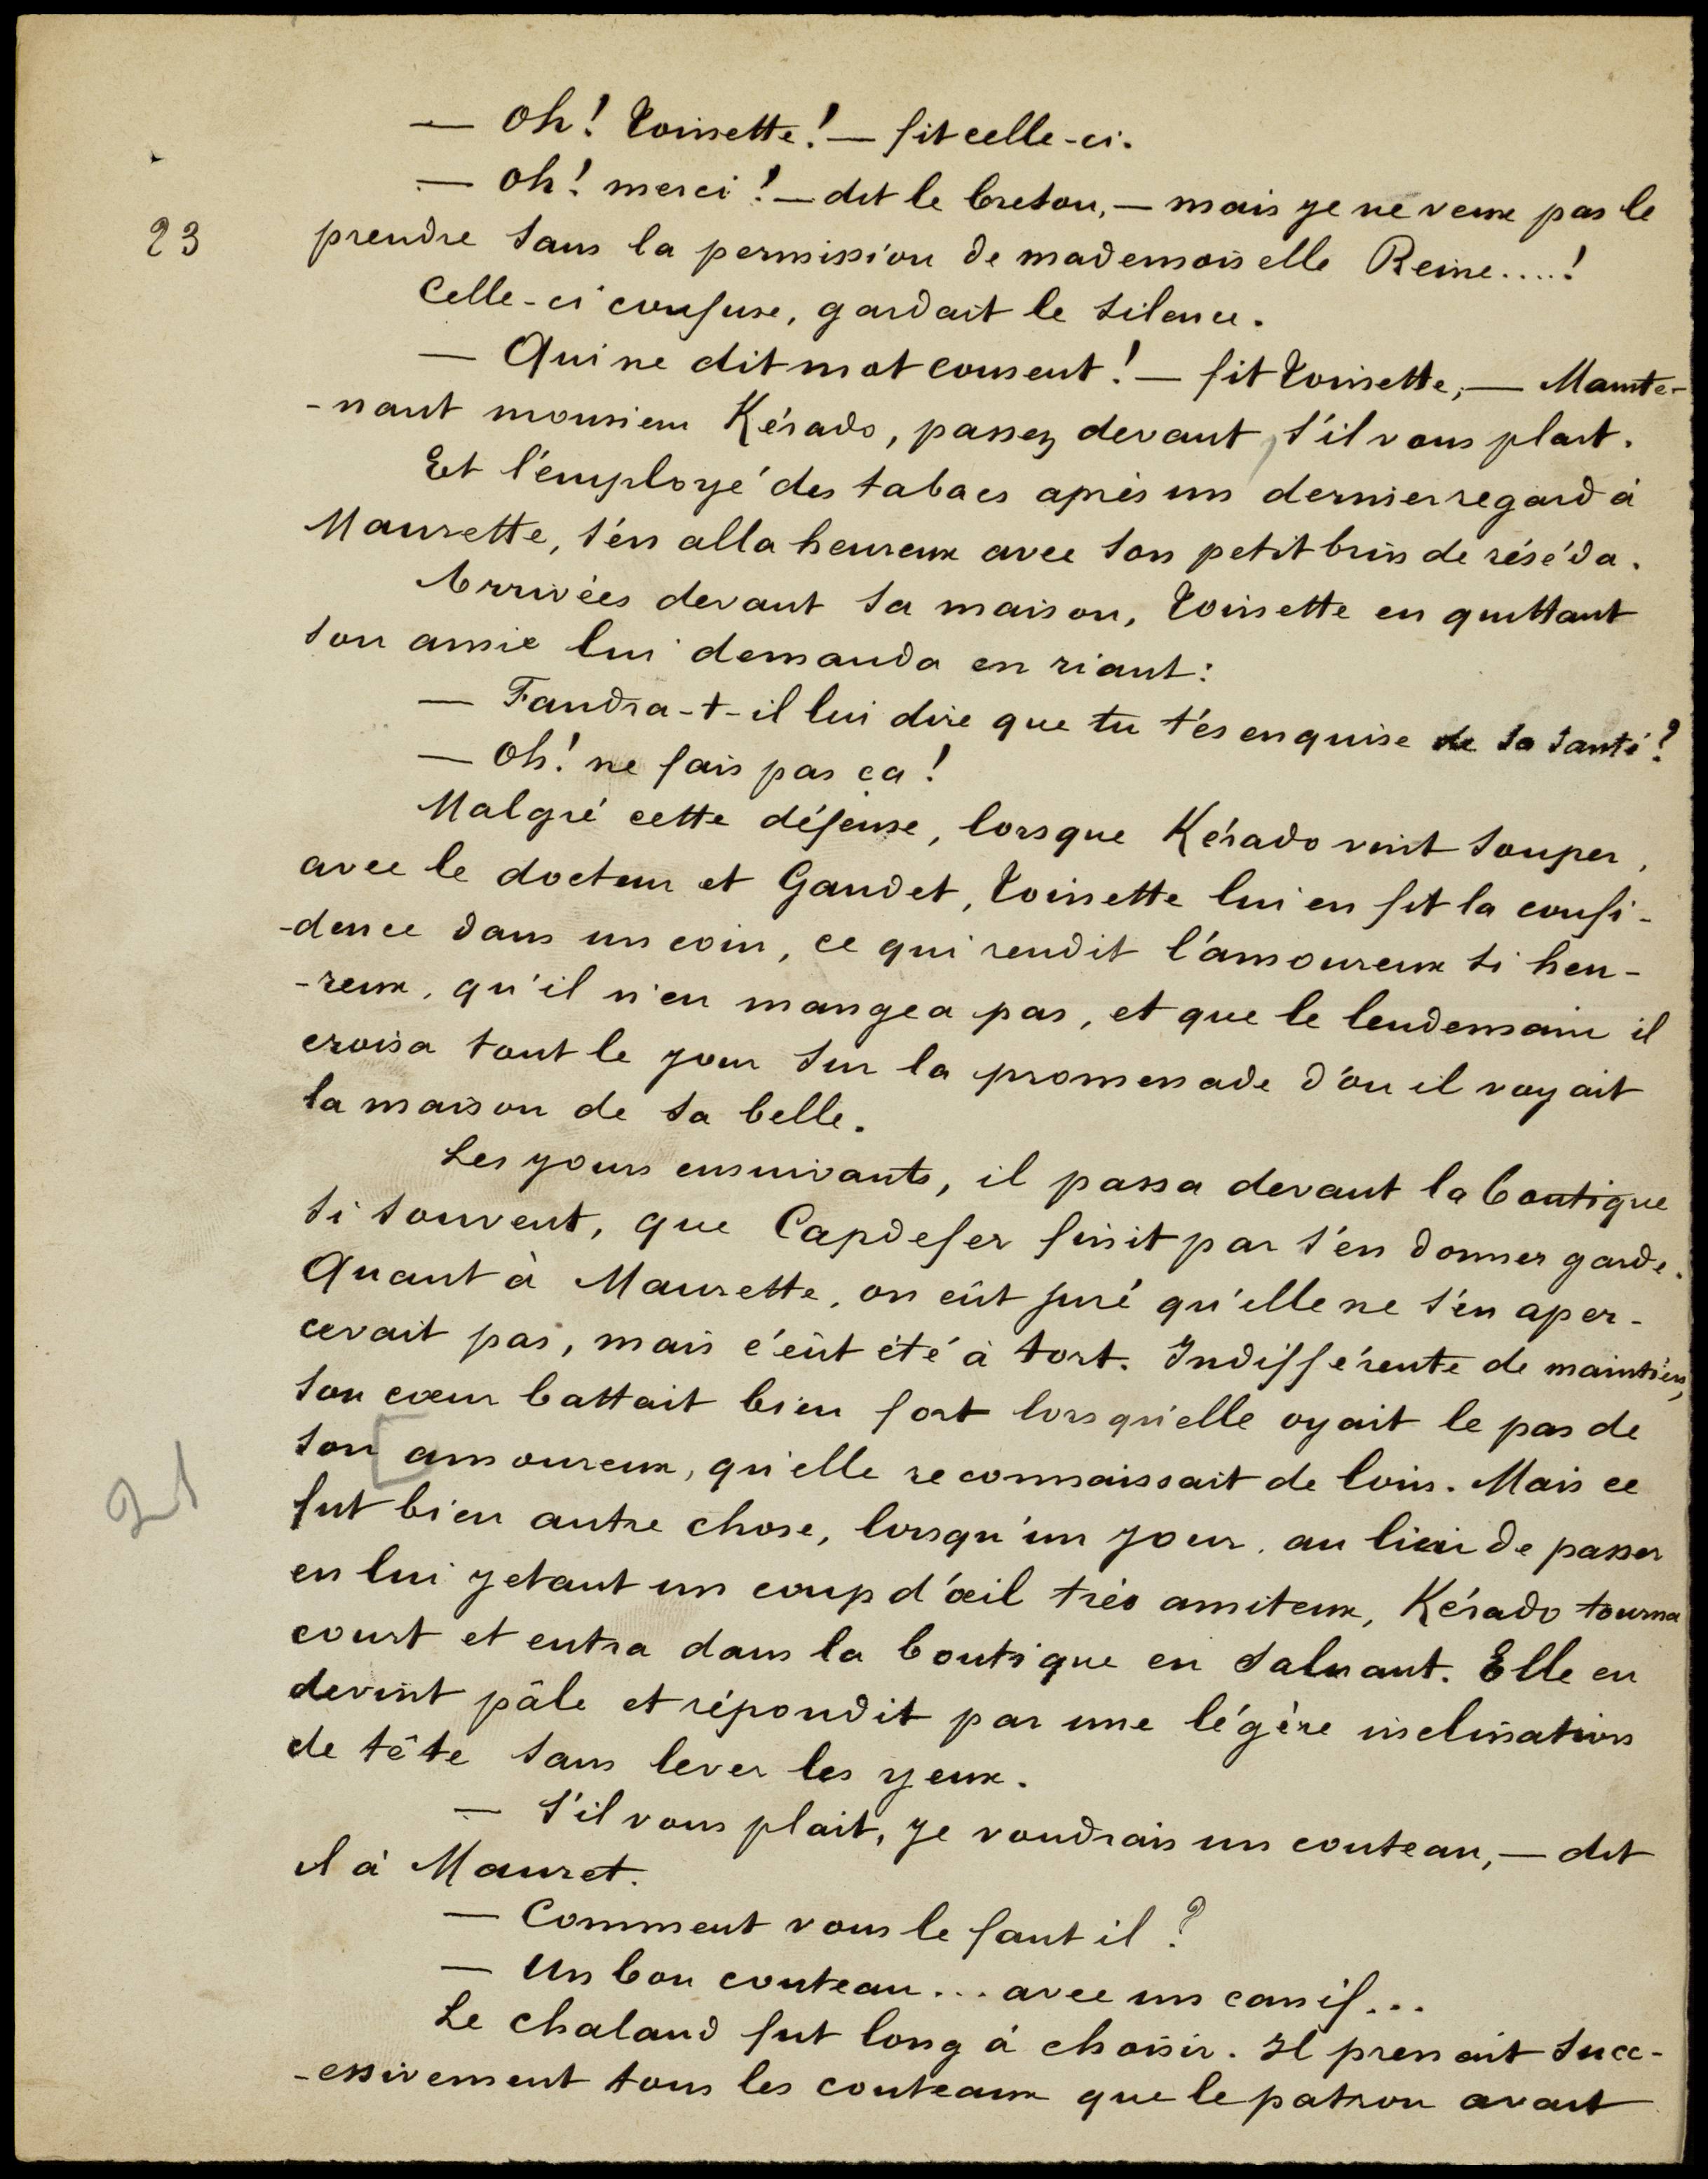 — Oh! Toinette! — fit celle-ci.
— Oh! merci! — dit le breton, — mais je ne veux pas le
23
prendre sans la permission de mademoiselle Reine....!
Celle-ci confuse, gardait le silence.
— Qui ne dit mot consent! — fit Toinette, — Mainte-
-nant monsieur Kérado, passez devant, s'il vous plait.
Et l'employé des tabacs après un dernier regard à
Maurette, s'en alla heureux avec son petit brin de réséda.
Arrivées devant sa maison, Toinette en quittant
son amie lui demanda en riant:
— Faudra-t-il lui dire que tu t'es enquise de sa santé?
— Oh! ne fais pas ça!
Malgré cette défense, lorsque Kérado vint souper,
avec le docteur et Gaudet, Toinette lui en fit la confi-
-dence dans un coin, ce qui rendit l'amoureux si heu-
-reux, qu'il n'en mangea pas, et que le lendemain il
croisa tout le jour sur la promenade d'ou il voyait
la maison de sa belle.
Les jours ensuivants, il passa devant la boutique
si souvent, que Capdefer finit par s'en donner garde.
Quant à Maurette, on eût juré qu'elle ne s'en aper-
cevait pas, mais c'eût été à tort. Indifférente de maintien,
son cœur battait bien fort lorsqu'elle oyait le pas de
son [amoureux, qu'elle reconnaissait de loin. Mais ce
21
fut bien autre chose, lorsqu'un jour, au lieu de passer
en lui jetant un coup d'œil très amiteux, Kérado tourna
court et entra dans la boutique en saluant. Elle en
devint pâle et répondit par une légère inclination
de tête sans lever les yeux.
— S'il vous plait, je voudrais un couteau, — dit
il à Mauret.
— Comment vous le faut il?
— Un bon couteau... avec un canif...
Le chaland fut long à choisir. Il prenait succ-
-essivement tous les couteaux que le patron avait